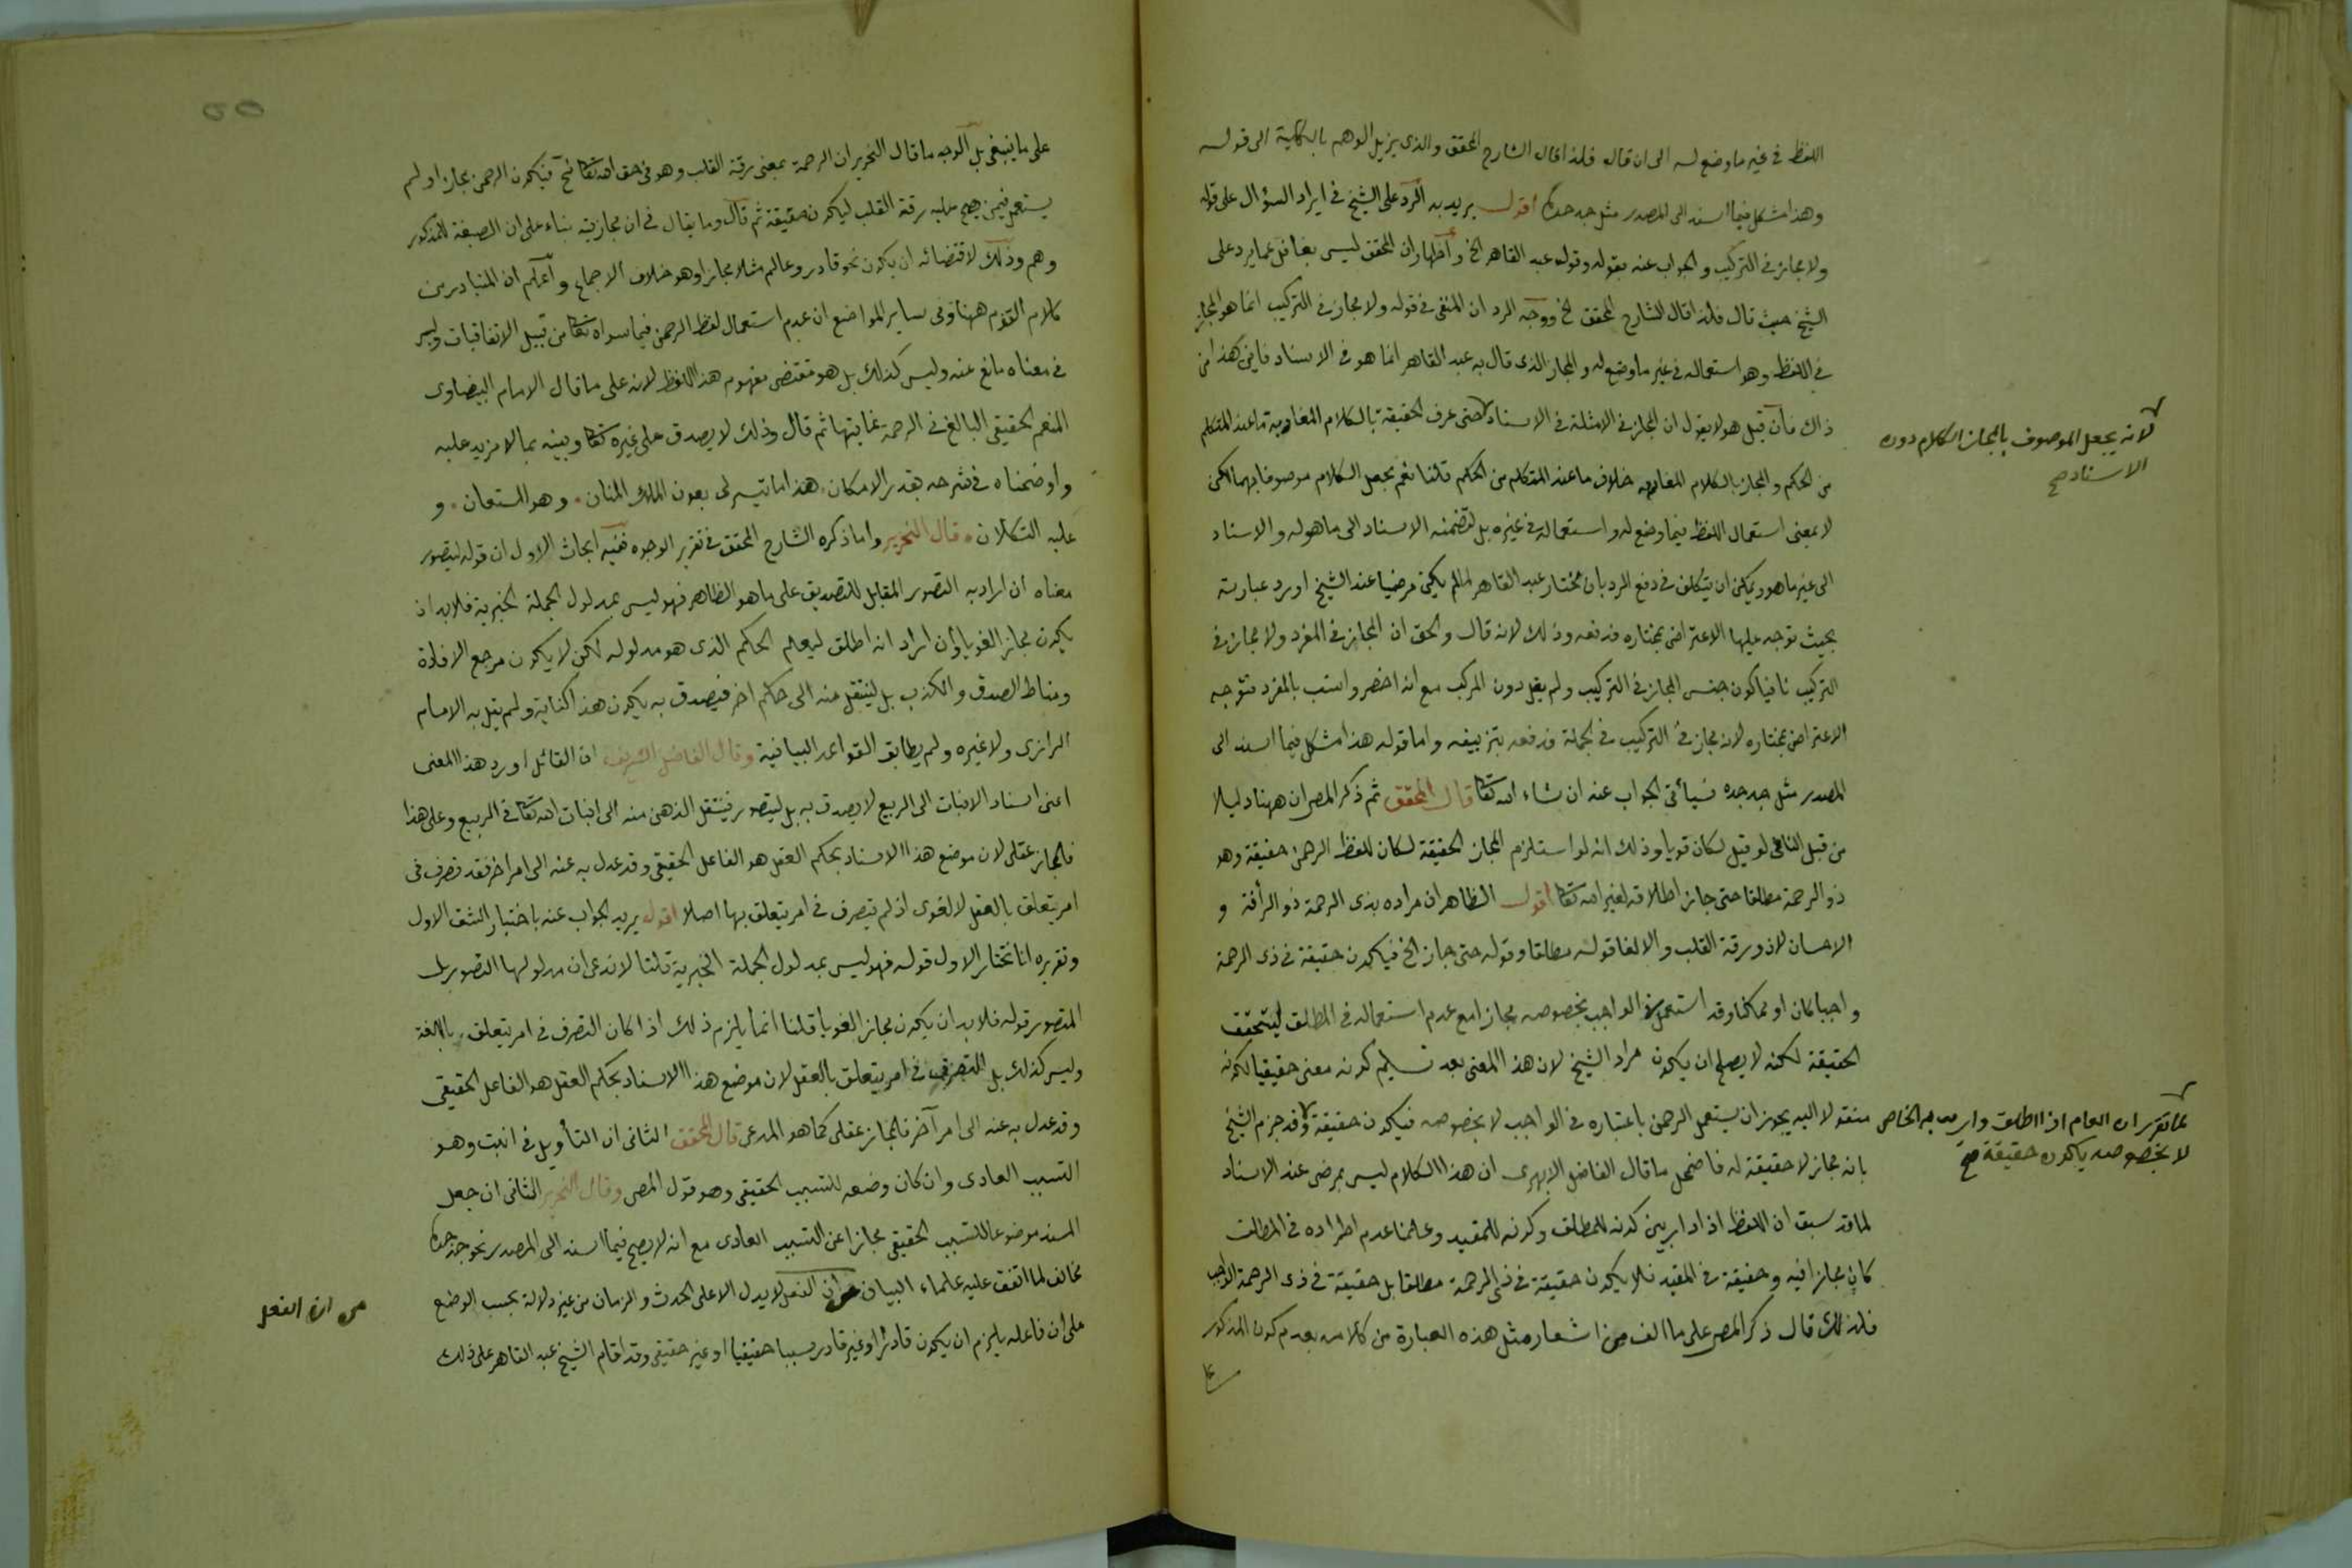 اللفظ في غير ما وضع له الى ان قال فلذا قال الشارح المحقق والذى يزيل الوهم بالكلية الى قوله
وهذا مشكل فيما اسند الى المصدر مثل جد جده اقول يريد به الرد على الشيخ في ايراد السؤال على قوله
ولا مجاز في التركيب والجواب عنه بقوله وقول عبد القاهر الخ واظهار ان المحقق ليس بغافل عما يرد على
الشيخ حيث قال فلذا قال الشارح المحقق الخ ووجه الرد ان المنفى في قوله ولا مجاز في التركيب انما هو المجاز
في اللفظ وهو استعماله في غير ما وضع له والمجاز الذى قال به عبد القاهر انما هو في الاسناد فاين هذا من
ذاك فان قيل هو لا يقول ان المجاز في الامثلة في الاسناد حتى عرف الحقيقة بالكلام المفاد به ما عند المتكلم
لانه يجعل الموصوف بالمجاز الكلام دون
الاسناد صح
من الحكم والمجاز بالكلام المفاد به خلاف ما عند المتكلم من الحكم قلنا نعم يجعل الكلام موصوفا بهما لكن
لا بمعنى استعمال اللفظ فيما وضع له واستعماله في غيره بل لتضمنه الاسناد الى ما هو له والاسناد
الى غير ما هو ويمكن ان يتكلف في دفع الرد بان مختار عبد القاهر لما لم يكن مرضيا عند الشيخ اورد عبارته
بحيث توجه عليها الاعتراض بمختاره فدفعه وذلك لانه قال والحق ان المجاز في المفرد ولا مجاز في
التركيب نافيا كون جنس المجاز في التركيب ولم يقل دون المركب مع انه اخصر وانسب بالمفرد فتوجه
الاعتراض بمختاره لانه مجاز في التركيب في الجملة فدفعه بتزييفه واما قوله هذا مشكل فيما اسند الى
المصدر مثل جد جده فسيأتى الجواب عنه ان شاء الله تعالى قال المحقق ثم ذكر المص ان ههنا دليلا
من قبل النافى لو قيل لكان قويا وذلك انه لو استلزم المجاز الحقيقة لكان للفظ الرحمن حقيقة وهو
ذو الرحمة مطلقا حتى جاز اطلاقه لغير الله تعالى اقول الظاهر ان مراده بذى الرحمة ذو الرأفة و
الاحسان لا ذو رقة القلب والا لغا قوله مطلقا وقوله حتى جاز الخ فيكون حقيقة في ذى الرحمة
واجبا كان او ممكنا وقد استعمل في الواجب بخصوصه مجازا مع عدم استعماله في المطلق ليتحقق
الحقيقة لكنه لا يصلح ان يكون مراد الشيخ لان هذا المعنى بعد تسليم كونه معنى حقيقيا لكونه
منقولا اليه يجوز ان يستعمل الرحمن باعتباره في الواجب لا بخصوصه فيكون حقيقة وقد جزم الشيخ
لما تقرر ان العام اذا اطلق واريد به الخاص
لا بخصوصه يكون حقيقة صح
بانه مجاز لا حقيقة له فاضمحل ما قال الفاضل الابهرى ان هذا الكلام ليس بمرضى عند الاسناد
لما قد سبق ان اللفظ اذا دار بين كونه للمطلق وكونه للمقيد وعلمنا عدم اطراده في المطلق
كان مجازا فيه وحقيقة في المقيد فلا يكون حقيقة في ذى الرحمة مطلقا بل حقيقة في ذى الرحمة الواجب
فلذلك قال ذكر المص على ما الف من اشعار مثل هذه العبارة من كلامه بعدم كون المذكور
على
على ما ينبغى بل الوجه ما قال النحرير ان الرحمة بمعنى رقة القلب وهو في حق الله تعالى مح فيكون الرحمن مجازا ولم
يستعمل فيمن يصح عليه رقة القلب ليكون حقيقة ثم قال وما يقال في ان مجازيته بناء على ان الصيغة للمذكور
وهم وذلك لاقتضائه ان يكون نحو قادر وعالم مثلا مجازا وهو خلاف الاجماع واعلم ان المتبادر من
كلام القوم ههنا وفى ساير المواضع ان عدم استعمال لفظ الرحمن فيما سواه تعالى من قبيل الاتفاقيات وليس
في معناه مانع عنه وليس كذلك بل هو مقتضى مفهوم هذا اللفظ لانه على ما قال الامام البيضاوى
المنعم الحقيقى البالغ في الرحمة غايتها ثم قال وذلك لا يصدق على غيره تعالى وبينه بما لا مزيد عليه
واوضحناه في شرحه بقدر الامكان هذا ما تيسر لى بعون الملك المنان وهو المستعان و
عليه التكلان قال النحرير واما ذكره الشارح المحقق في تقرير الوجوه ففيه ابحاث الاول ان قوله ليتصور
معناه ان اراد به التصور المقابل للتصديق على ما هو الظاهر فهو ليس بمدلول الجملة الخبرية فلا بد ان
يكون مجازا لغويا وان اراد انه اطلق ليعلم الحكم الذى هو مدلوله لكن لا يكون مرجع الافادة
ومناط الصدق والكذب بل لينتقل منه الى حكم اخر فيصدق به يكون هذا كناية ولم يقل به الامام
الرازى ولا غيره ولم يطابق القواعد البيانية وقال الفاضل الشريف ان القائل اورد هذا المعنى
اعنى اسناد الانبات الى الربيع لا يصدق به بل ليتصور فينتقل الذهن منه الى انبات الله تعالى في الربيع وعلى هذا
فالمجاز عقلى لان موضع هذا الاسناد بحكم العقل هو الفاعل الحقيقى وقد عدل به عنه الى امر اخر فقد تصرف في
امر يتعلق بالعقل لا لغوى اذ لم يتصرف في امر يتعلق بها اصلا اقول يريد الجواب عنه باختيار الشق الاول
وتقريره انا نختار الاول قوله فهو ليس بمدلول الجملة الخبرية قلنا لا ندعى ان مدلولها التصور بل
المتصور قوله فلا بد ان يكون مجازا لغويا قلنا انما يلزم ذلك اذا كان التصرف في امر يتعلق باللغة
وليس كذلك بل التصرف في امر يتعلق بالعقل لان موضع هذا الاسناد بحكم العقل هو الفاعل الحقيقى
وقد عدل به عنه الى امر آخر فالمجاز عقلى كما هو المدعى قال المحقق الثانى ان التأويل في انبت وهو
التسبب العادى وان كان وضعه للتسبب الحقيقى وهو قول المص وقال النحرير الثانى ان جعل
المسند موضوعا للتسبب الحقيقى مجازا عن التسبب العادى مع انه لا يصح فيما اسند الى المصدر نحو جد جده
مخالف لما اتفق عليه علماء البيان من ان الفعل لا يدل الا على الحدث والزمان من غير دلالة بحسب الوضع
من ان الفعل
على ان فاعله يلزم ان يكون قادرا او غير قادر سببا حقيقيا او غير حقيقى وقد اقام الشيخ عبد القاهر على ذلك